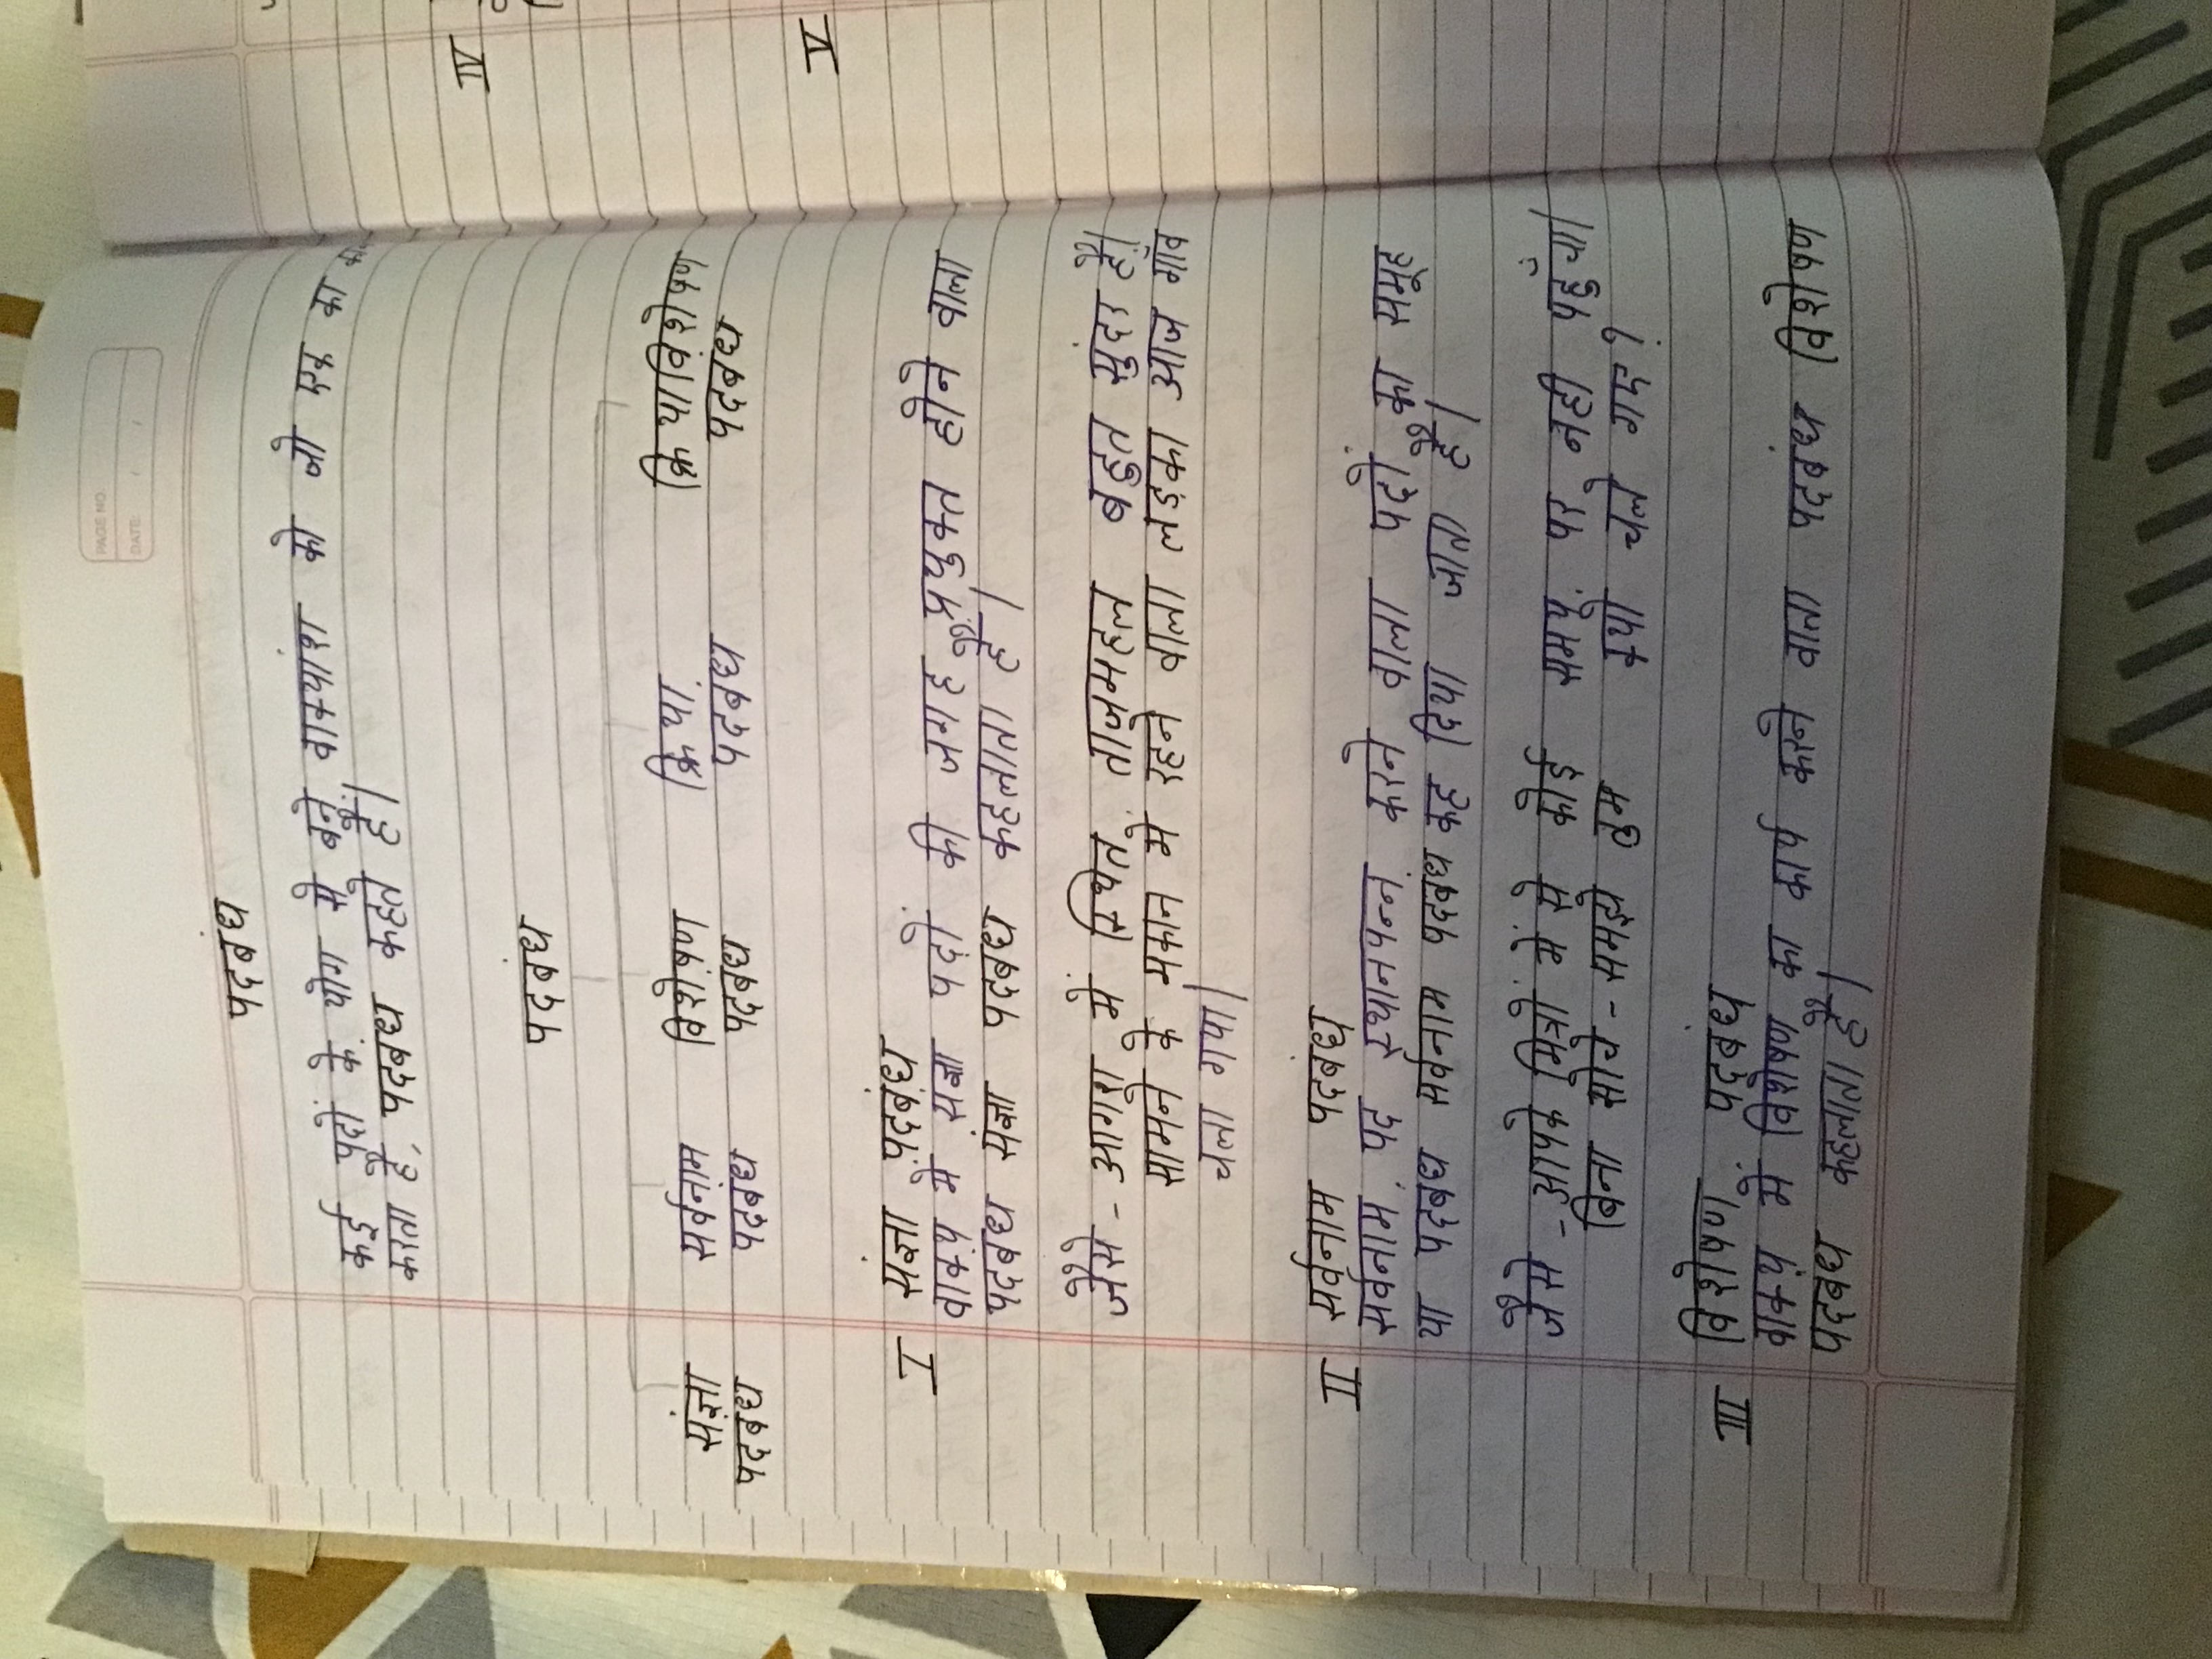 PAGE NO.
DATE: / /
पदबंध
कई पदों के योग से बने वाक्यांश को जो एक का
करता है, पदबंध कहते हैं।
पदबंध
संज्ञा सर्वनाम विशेषण क्रिया क्रियाविशेषण
पदबंध पदबंध पदबंध पदबंध पदबंध
I संज्ञा पदबंध
वाक्य में संज्ञा पदों की जगह प्रयुक्त होने वाला
पदबंध संज्ञा पदबंध कहलाता है।
जैसे - आगरा में स्थित ताजमहल बहुत सुंदर है।
सामने के मकान में रहने वाला लड़का आज गाँव
चला गया।
II सर्वनाम पदबंध
सर्वनाम पद स्थानपन्न करने वाला पदों का समूह
या पदबंध सर्वनाम पदबंध कह दिया जाता है।
जैसे - आपके मित्रों में से कोई समय पर नही पहुँचा।
बिना सोचे - समझे तुम क्यों चले गए?
III विशेषण पदबंध
वाक्य में विशेषण का कार्य करने वाला पदबंध विशेषण
पदबंध कहलाता है।
IV
V